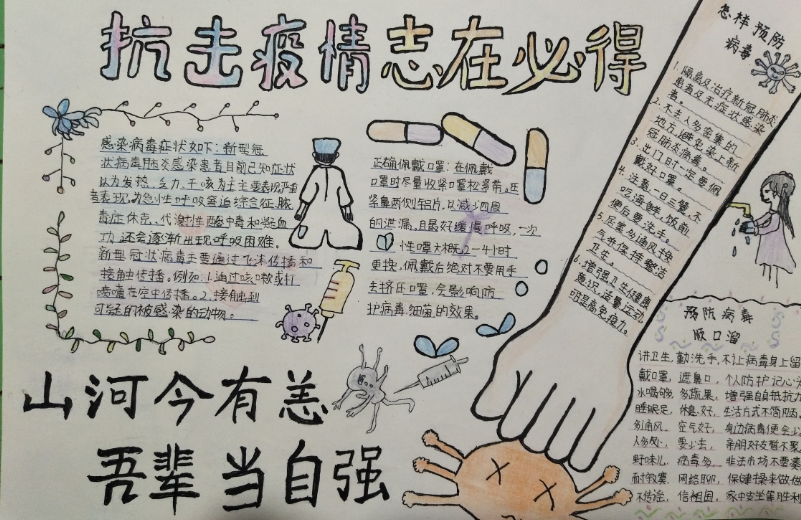 抗击疫情志在必得
感染病毒症状如下：新型冠
状病毒肺炎感染患者目前已知症状
认为发热、乏力、干咳为主主要表现严重
者表现为急性呼吸窘迫综合征脓
毒症休克、代谢性酸中毒和凝血
功 还会逐渐出现呼吸困难。
新型冠状病毒主要通过飞沫传播和
接触传播。例如：1.通过咳嗽或打
喷嚏在空中传播。2.接触到
可能的被感染的动物。
正确佩戴口罩：在佩戴
口罩时尽量收紧口罩松紧带，压
紧鼻两侧铝片，以减少四周
的泄漏，且最好缓慢呼吸，一次
性口罩大概2—4小时
更换，佩戴后绝对不要用手
去挤压口罩，会影响防
护病毒、细菌的效果。
怎样预防
病毒
1.隔离及治疗新冠肺炎
患者及无症状感染
者。
2.不去人多密集的
地方，避免染上新
冠肺炎病毒。
3.出门时一定要佩
戴好口罩。
4.注意一日三餐，不
吃海鲜，饭前
便后要洗手。
5.居室多通风换
气并保持整洁
卫生。
6.增强卫生健康
意识，适量运动
明显高免疫力。
预防病毒
顺口溜
讲卫生，勤洗手，不让病毒身上留
戴口罩，遮鼻口，个人防护记心
水喝够，多蔬果，增强自身抵抗力
睡眠足，休息好，生活方式不简
多通风，空气好，身边病毒便会少
人多处，要少去，亲朋好友暂不聚
野味儿，病毒多，非法市场不要
不传谣，信祖国，家中安坐等胜利
山河今有恙
吾辈当自强